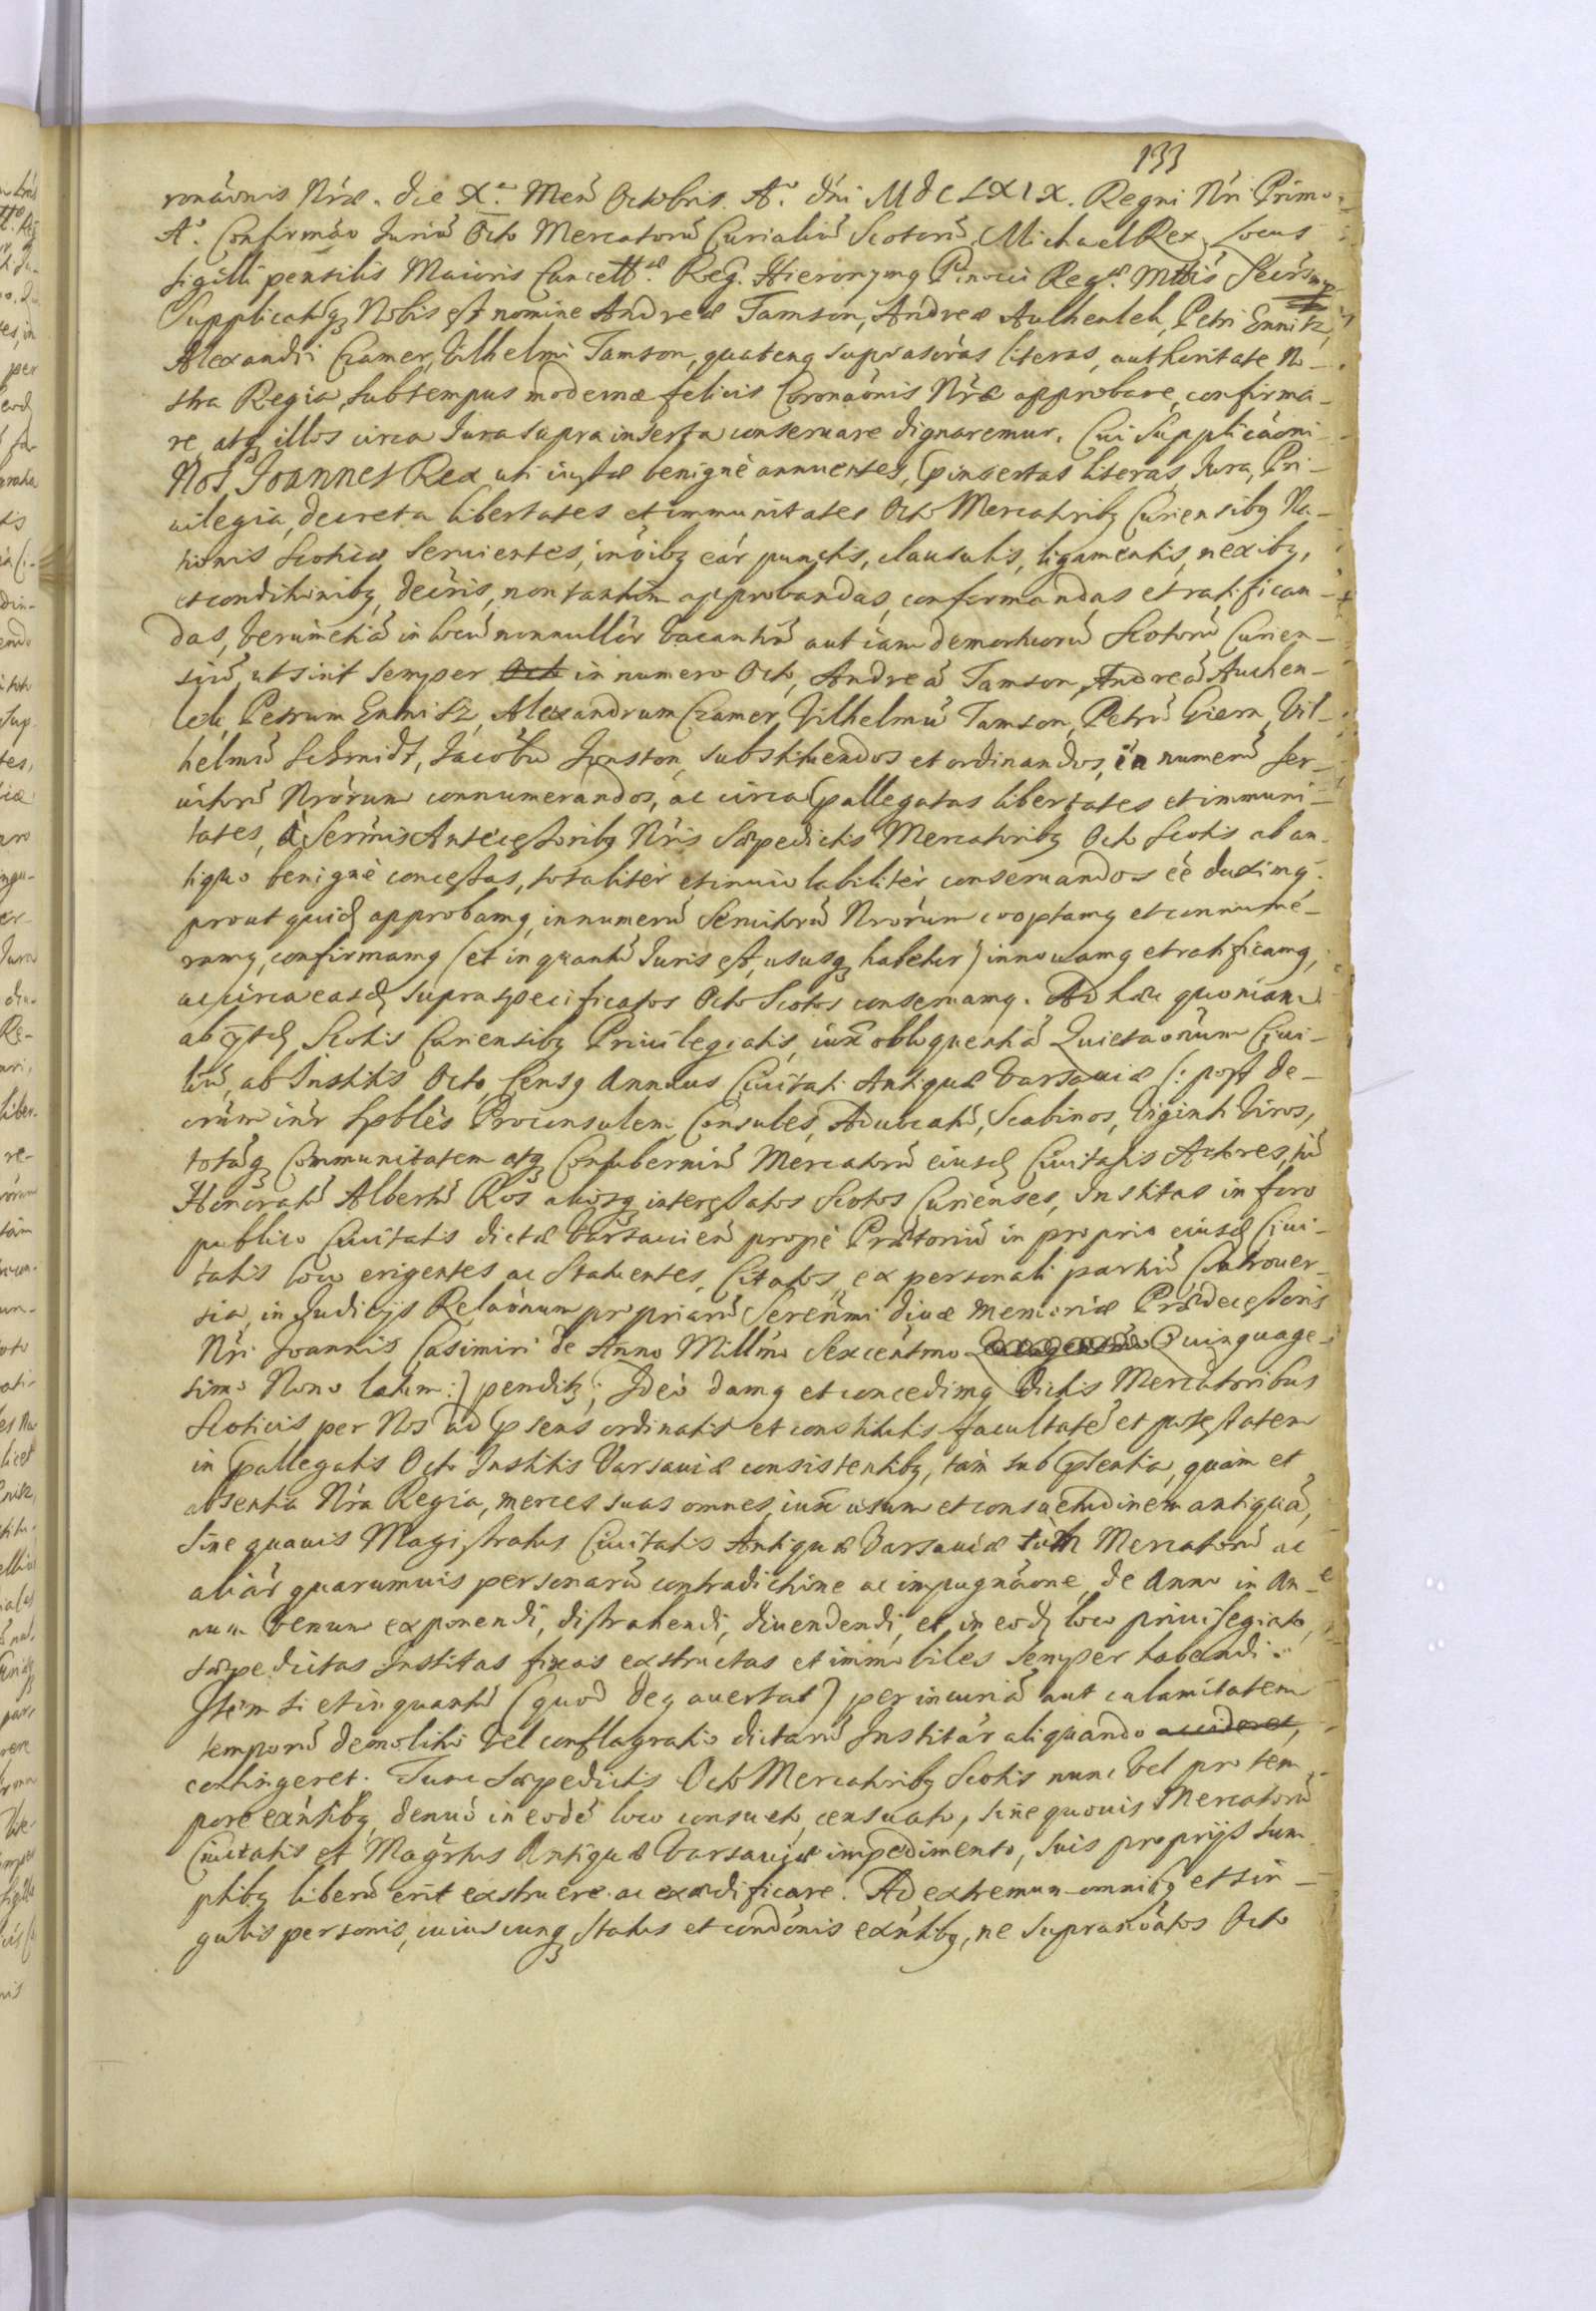 133
ronaōnis Nr̃æ. die X.ª Men̄ Octobris. A.º dn̄i MDCLXIX. Regni Nr̃i Primo.
A.º Confirmāo Juriū Octo Mercatorū Curialiū Scotorū. Michael Rex, Locus
sigilli pensilis Maioris Cancell.æ Reg. Hieronymꝰ Pinocci Reg.æ Mttis Secr̃s mp
Supplicatūqꝫ Nobis est nomine Andreæ Tamson, Andreæ Authenlek, Petri Ennitz,
Alexandri Czamer, Vilhelmi Tamson, quatenꝰ suprascr̃as literas, authoritate No-
stra Regia, sub tempus modernæ felicis Coronaōnis Nr̃æ approbare, confirma-
re atqꝫ illos circa Jura supra inserta conseruare dignaremur. Cui Supplicaōni
Nos Joannes Rex uti iustæ benignè annuentes, p̃insertas literas, Jura, Pri-
uilegia, decreta libertates et immunitates Octo Mercatoribꝫ Curiensibꝫ Na-
tionis Scoticæ Seruientes, in oībꝫ eār punctis, clausulis, ligamentis, nexibꝫ,
et conditionibꝫ, decr̃is, non tantùm approbandas, confirmandas et ratifican-
das, verùm etiā in locū nonnullōr vacantiū aut iam demortuorū Scotorū Curien-
siū, ut sint semper Octo in numero Octo, Andreā Tamson, Andreā Auchen-
lek, Petrum Ennitz, Alexandrum Czamer, Vilhelmū Tamson, Petrū Giern, Vil-
helmū Schmidt, Jacobū Jonston, substituendos et ordinandos, in numerū Ser-
uitorū Nrōrum connumerandos, ac circa p̃allegatas libertates et immuni-
tates, à Serm̄is Antecessoribꝫ Nr̃is Sæpedictis Mercatoribꝫ Octo Scotis ab an-
tiquo benignè concessas, totalitèr et inuiolabilitèr conseruandos eē duximꝰ.
prout quidꝫ approbamꝰ, in numerū Seruitorū Nrōrum cooptamꝰ et connume-
ramꝰ, confirmamꝰ (et in quantū Juris est, ususqꝫ habetur) innouamꝰ et ratificamꝰ,
ac circa easdꝫ supra specificatos Octo Scotos conseruamꝰ. Ad hæc quoniam
ab ijsdꝫ Scotis Curiensibꝫ Priuilegiatis, iux̃ obloquentiā Quietaōnum Ciui-
liū, ab Institis Octo, Censꝰ Annuus Ciuitati Antiquæ Varsauiæ (: post de-
crūm inr̃ Spbles Proconsulem Consules, Aduocatū, Scabinos, Viginti Viros,
totāqꝫ Communitatem atqꝫ Contuberniū Mercatorū eiusdꝫ Ciuitatis Actores, tū
Honoratū Albertū Ros aliosqꝫ interessatos Scotos Curienses, Institas in foro
publico Ciuitatis dictæ Varsauien̄ propè Prætoriū in proprio eiusdꝫ Ciui-
tatis loco erigentes ac Statuentes, Citatos, ex personali partiū Controuer-
sia, in Judicijs Relaōnum propriarū Serenm̄i diuæ memoriæ Prædecessoris
Nr̃i Joannis Casimiri de Anno Millm̄o Sexcentm̄o Quinquage-
simo Nono latum:) penditꝫ; Ideò damꝰ et concedimꝰ dictis Mercatoribus
Scoticis per Nos ad p̃sens ordinatis et constitutis facultatē et potestatem
in p̃allegatis Octo Institis Varsauiæ consistentibꝫ, tàm sub p̃sentia, quàm et
absentia Nr̃a Regia, merces suas omnes, iux̃ usum et consuetudinem antiquā,
Sine quauis Magistratus Ciuitatis Antiquæ Varsauiæ tùm Mercatorū ac
aliār quarumuis personarū contradictione ac impugnāone, de Anno in An-
num venum exponendi, distrahendi, diuendendi, et in eodꝫ loco priuilegiato,
sæpedictas Institas fixas exstructas et immobiles semper habendi.
Item si et in quantū (quod Deꝰ auertat) per incuriā aut calamitatem
temporū demolitio vel conflagratio dictarū Institār aliquando accideret,
contingeret. Tunc Sæpedictis Octo Mercatoribꝫ Scotis nunc vel pro tem-
pore exñtibꝫ, denuò in eodē loco consueto, censuato, sine quouis Mercatorū
Ciuitatis et Magr̃tus Antiquæ Varsauiæ impedimento, suis proprijs sum-
ptibꝫ liberū erit exstruere ac exædificare. Ad extremum omnibꝫ et sin-
gulis personis, cuiuscunqꝫ Status et condōnis exñtibꝫ, ne supranōatos Octo